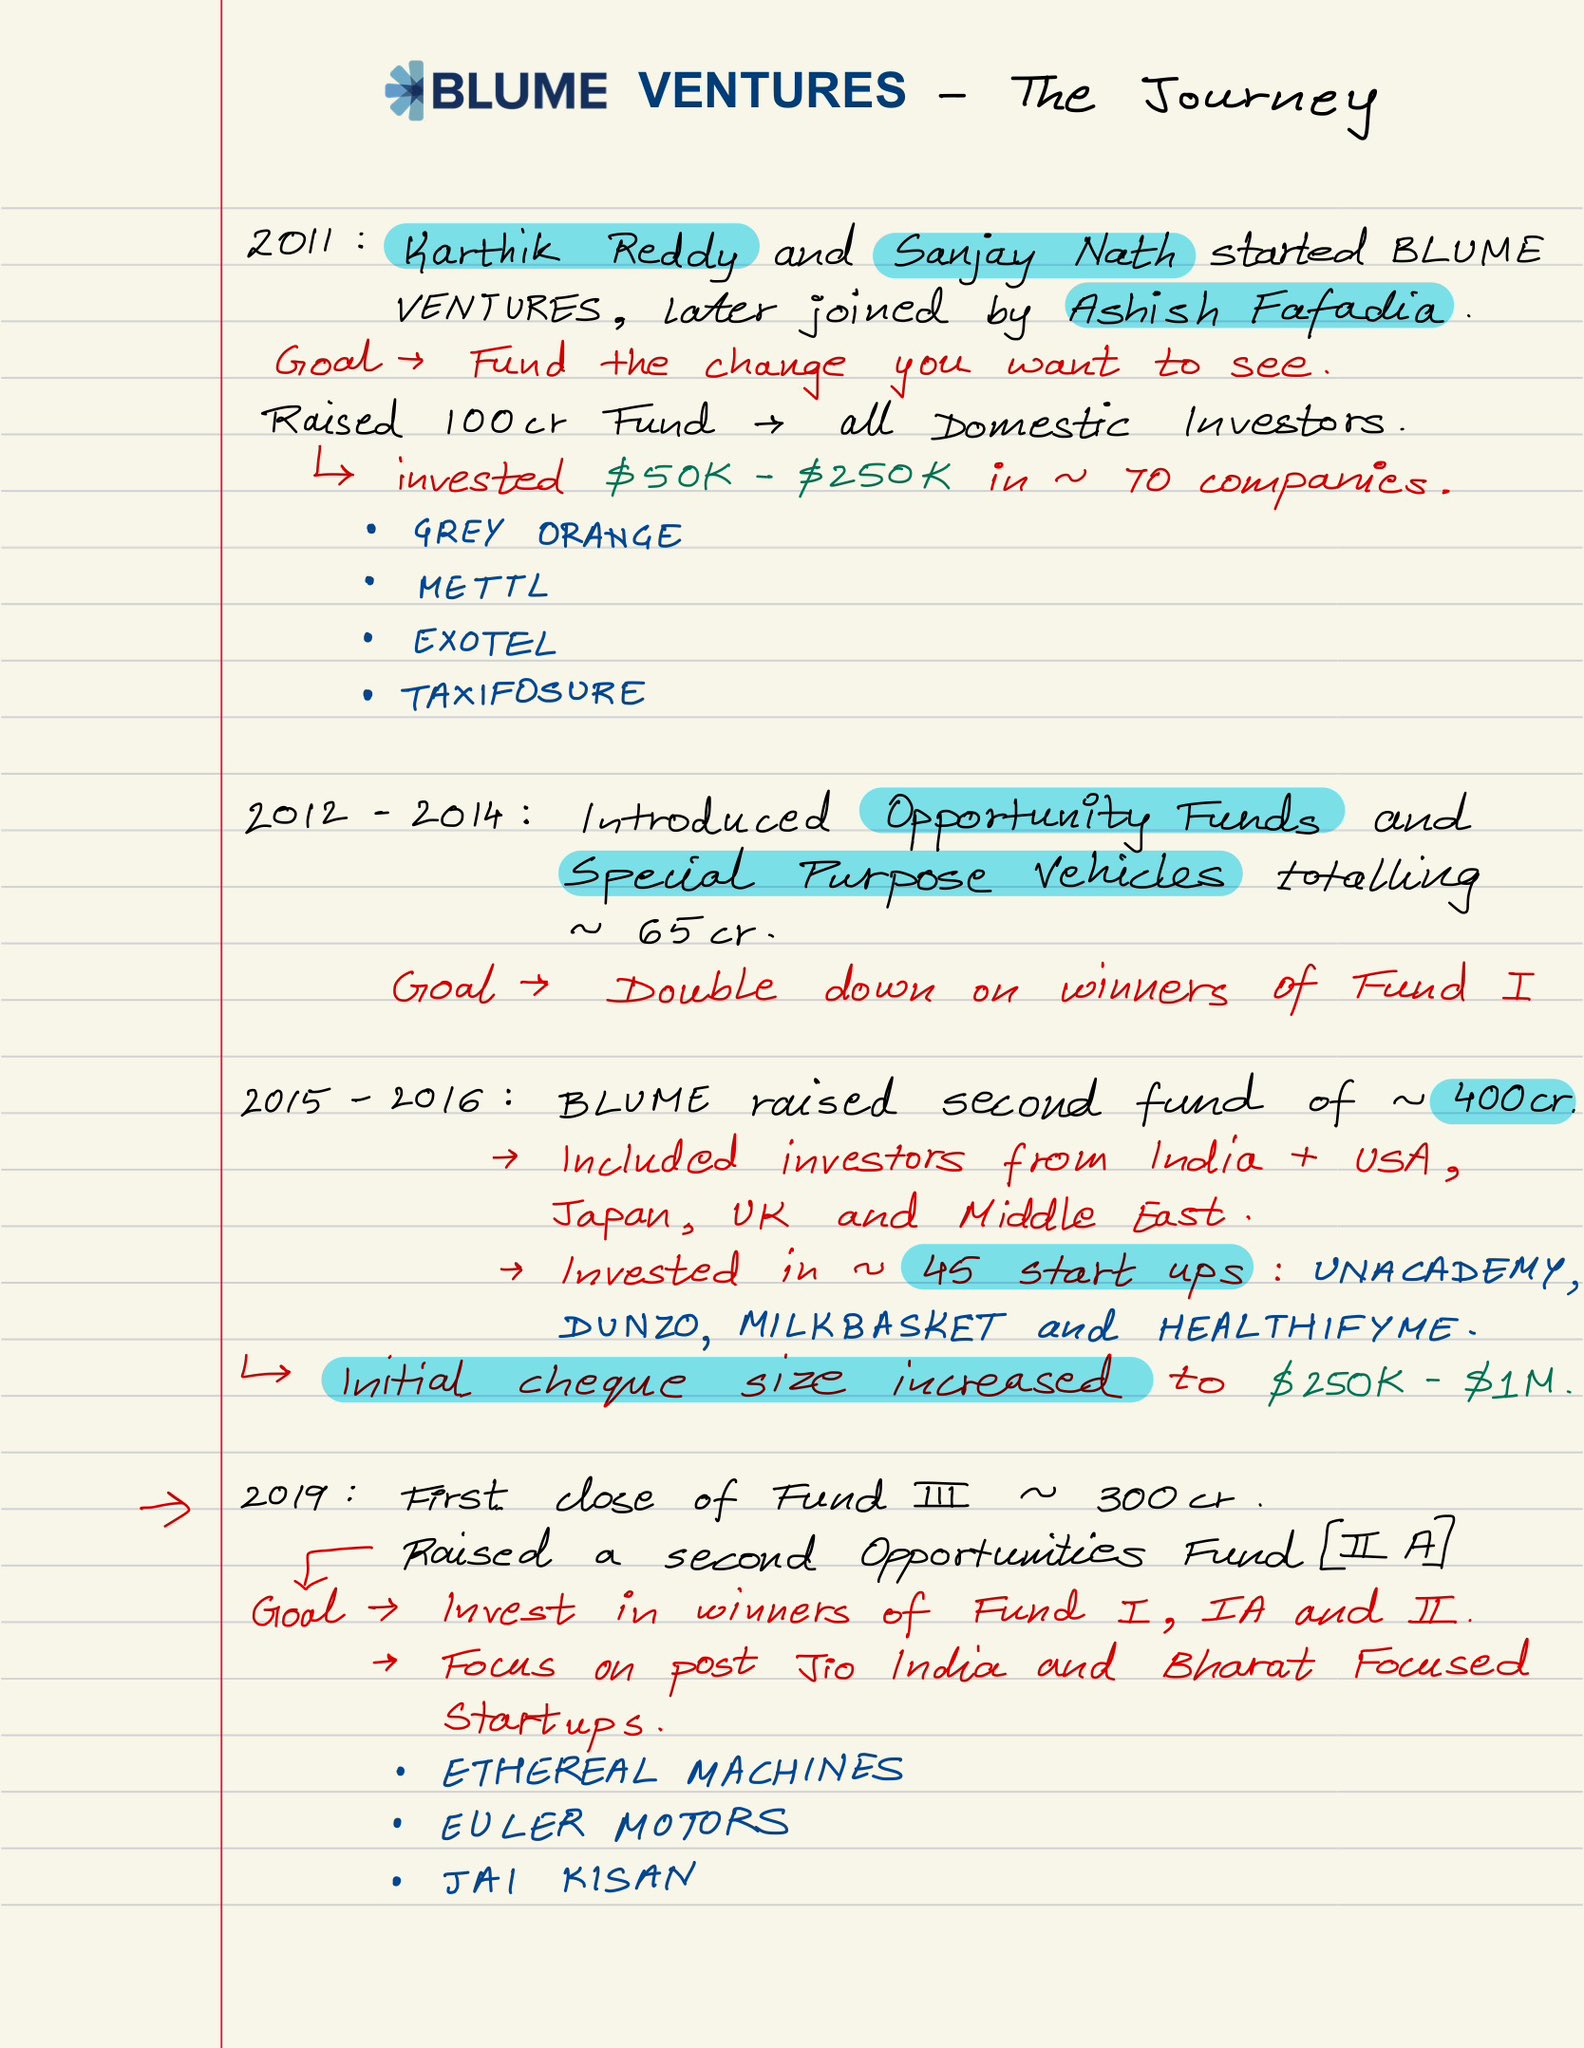 BLUME VENTURES - The Journey
2011 : Karthik Reddy and Sanjay Nath started BLUME
VENTURES, later joined by Ashish Fafadia.
Goal → Fund the change you want to see.
Raised 100cr Fund → all Domestic Investors.
↳ invested $50K - $250K in ~ 70 companies.
• GREY ORANGE
• METTL
• EXOTEL
• TAXIFOSURE
2012 - 2014 : Introduced Opportunity Funds and
Special Purpose Vehicles totalling
~ 65 cr.
Goal → Double down on winners of Fund I
2015 - 2016 : BLUME raised second fund of ~ 400cr.
→ Included investors from India + USA,
Japan, UK and Middle East.
→ Invested in ~ 45 start ups : UNACADEMY,
DUNZO, MILKBASKET and HEALTHIFYME.
↳ Initial cheque size increased to $250K - $1M.
→ 2019 : First close of Fund III ~ 300 cr.
Raised a second Opportunities Fund [II A]
Goal → Invest in winners of Fund I, IA and II.
→ Focus on post Jio India and Bharat Focused
Startups.
• ETHEREAL MACHINES
• EULER MOTORS
• JAI KISAN